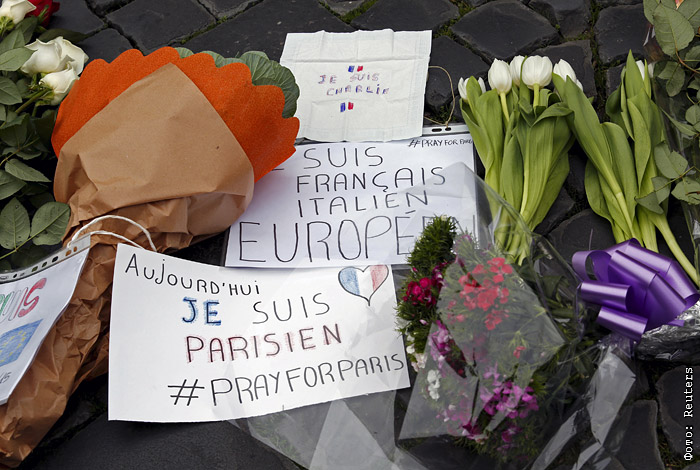 JE SUIS
CHARLIE
#PRAYFORPARIS
SUIS
FRANÇAIS
ITALIEN
EUROPÉEN
AUJOURD'HUI
JE SUIS
PARISIEN
#PRAYFORPARIS
Фото: Reuters